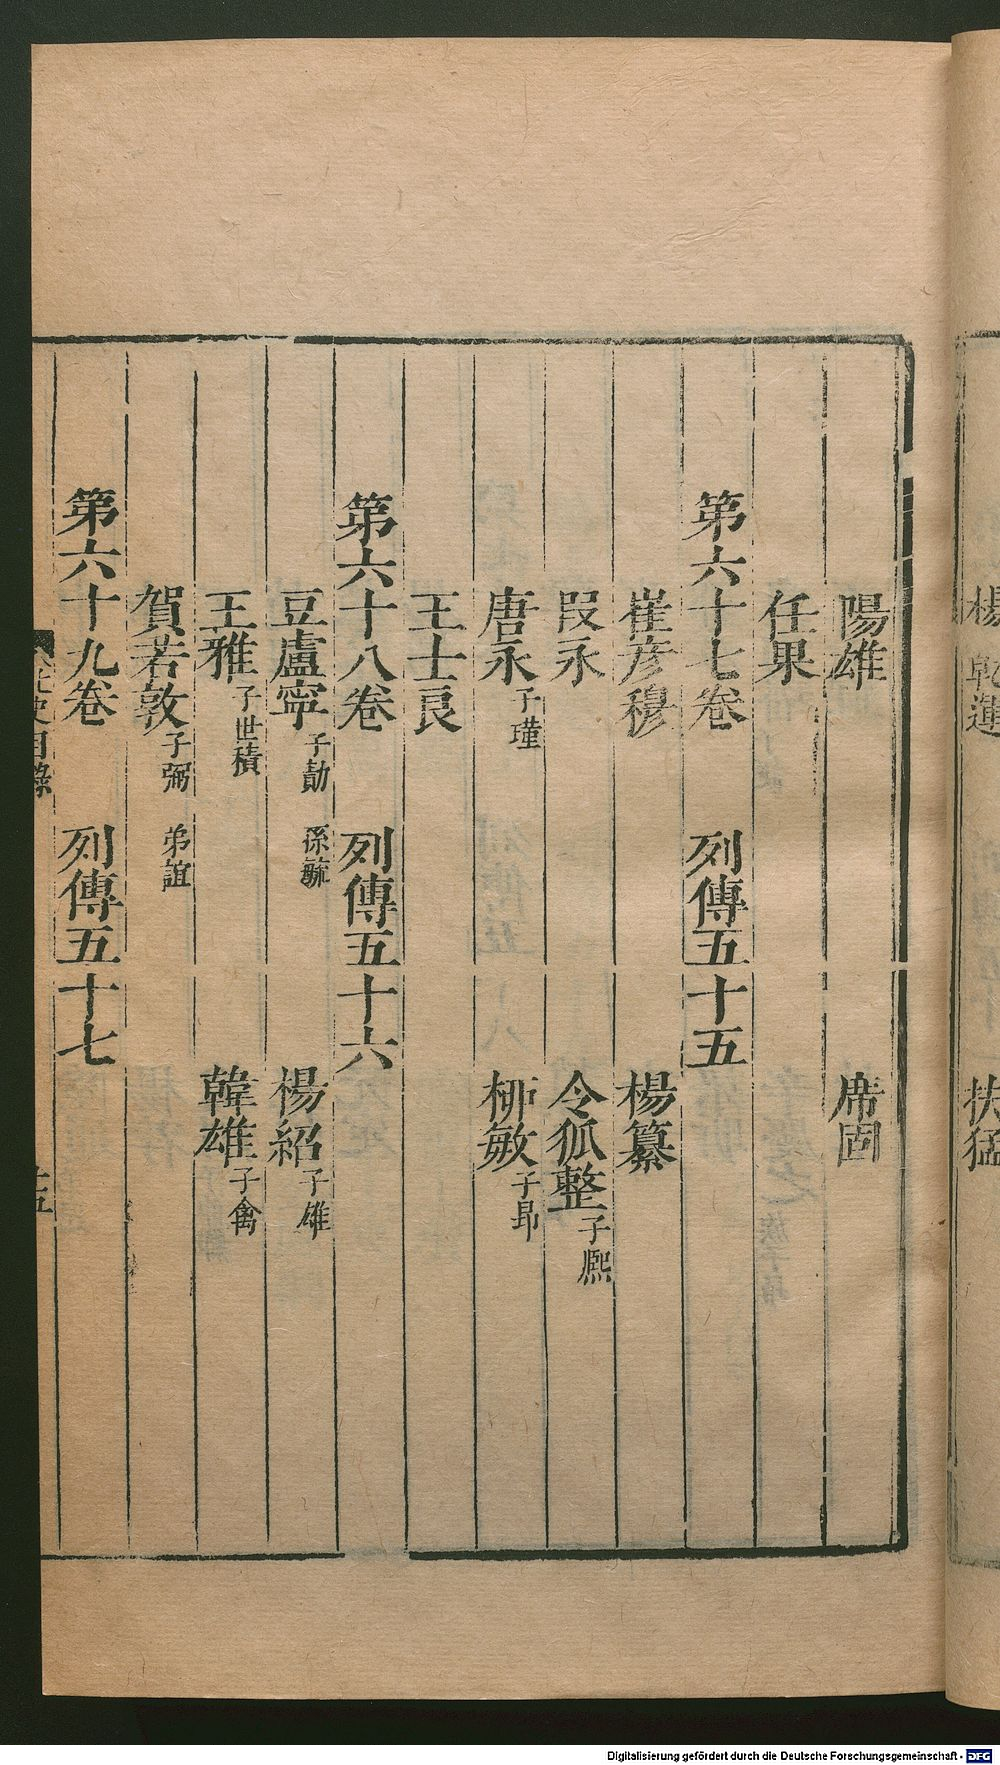 楊乾運　扶猛
陽雄　席固
任果
第六十七卷　列傳五十五
崔彦穆　楊纂
段永　令狐整子熈
唐永子瑾　柳敏子昂
王士良
第六十八卷　列傳五十六
豆盧寧子勣　孫毓　楊紹子雄
王雅子世積　韓雄子禽
賀若敦子弼　弟誼
第六十九卷　列傳五十七
北史目錄　十五
Digitalisierung gefördert durch die Deutsche Forschungsgemeinschaft - DFG